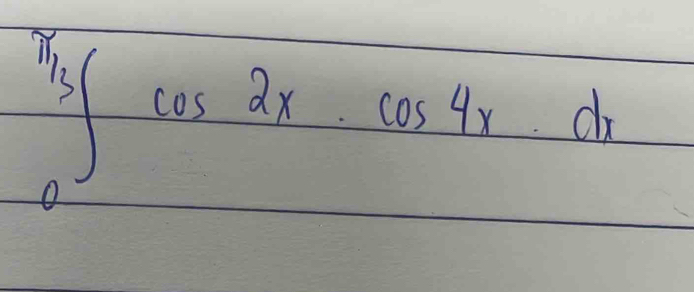 π/3
∫ cos 2x . cos 4x . dx
0